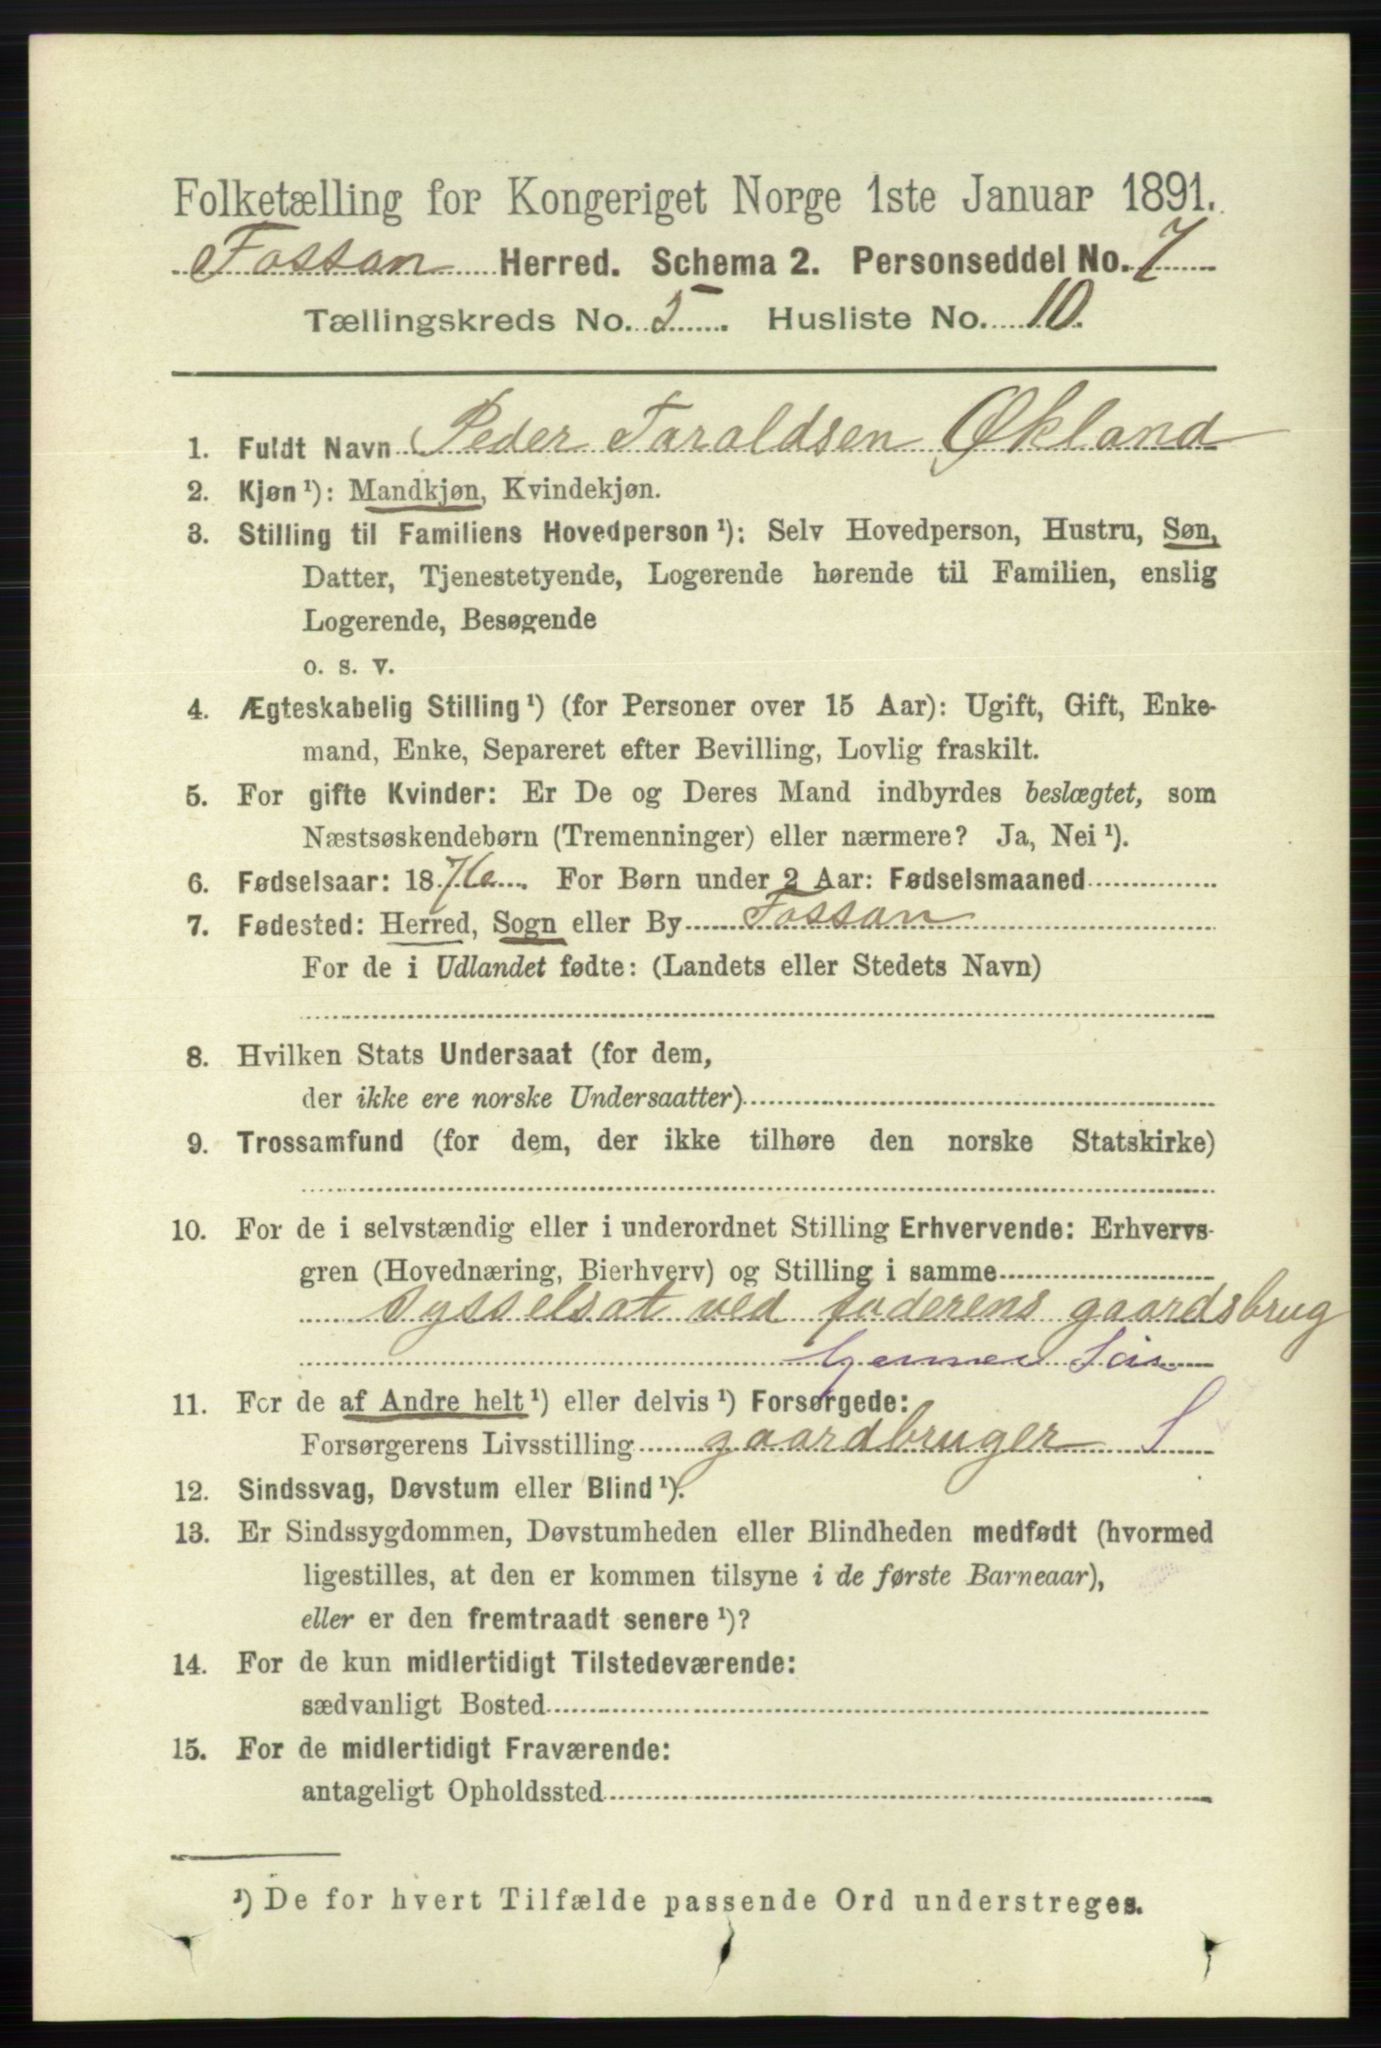 Folketælling for Kongeriget Norge 1ste Januar 1891.
Fossan Herred. Schema 2. Personseddel No. 7
Tællingskreds No. 5. Husliste No. 10.
1. Fuldt Navn Peder Taraldsen Økland
2. Kjøn ¹): Mandkjøn, Kvindekjøn.
3. Stilling til Familiens Hovedperson ¹): Selv Hovedperson, Hustru, Søn,
Datter, Tjenestetyende, Logerende hørende til Familien, enslig
Logerende, Besøgende
o. s. v.
4. Ægteskabelig Stilling ¹) (for Personer over 15 Aar): Ugift, Gift, Enke-
mand, Enke, Separeret efter Bevilling, Lovlig fraskilt.
5. For gifte Kvinder: Er De og Deres Mand indbyrdes beslægtet, som
Næstsøskendebørn (Tremenninger) eller nærmere? Ja, Nei ¹).
6. Fødselsaar: 1876. For Børn under 2 Aar: Fødselsmaaned
7. Fødested: Herred, Sogn eller By Fossan
For de i Udlandet fødte: (Landets eller Stedets Navn)
8. Hvilken Stats Undersaat (for dem,
der ikke ere norske Undersaatter)
9. Trossamfund (for dem, der ikke tilhøre den norske Statskirke)
10. For de i selvstændig eller i underordnet Stilling Erhvervende: Erhvervs-
gren (Hovednæring, Bierhverv) og Stilling i samme
Sysselsat ved faderens gaardsbrug
11. For de af Andre helt ¹) eller delvis ¹) Forsørgede:
Forsørgerens Livsstilling gaardbruger S
12. Sindssvag, Døvstum eller Blind ¹).
13. Er Sindssygdommen, Døvstumheden eller Blindheden medfødt (hvormed
ligestilles, at den er kommen tilsyne i de første Barneaar),
eller er den fremtraadt senere ¹)?
14. For de kun midlertidigt Tilstedeværende:
sædvanligt Bosted
15. For de midlertidigt Fraværende:
antageligt Opholdssted
¹) De for hvert Tilfælde passende Ord understreges.